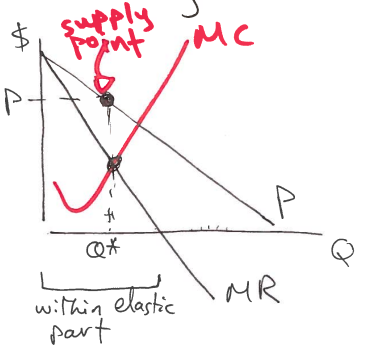 $
supply
point
MC
P
P
Q*
Q
within elastic
part
MR